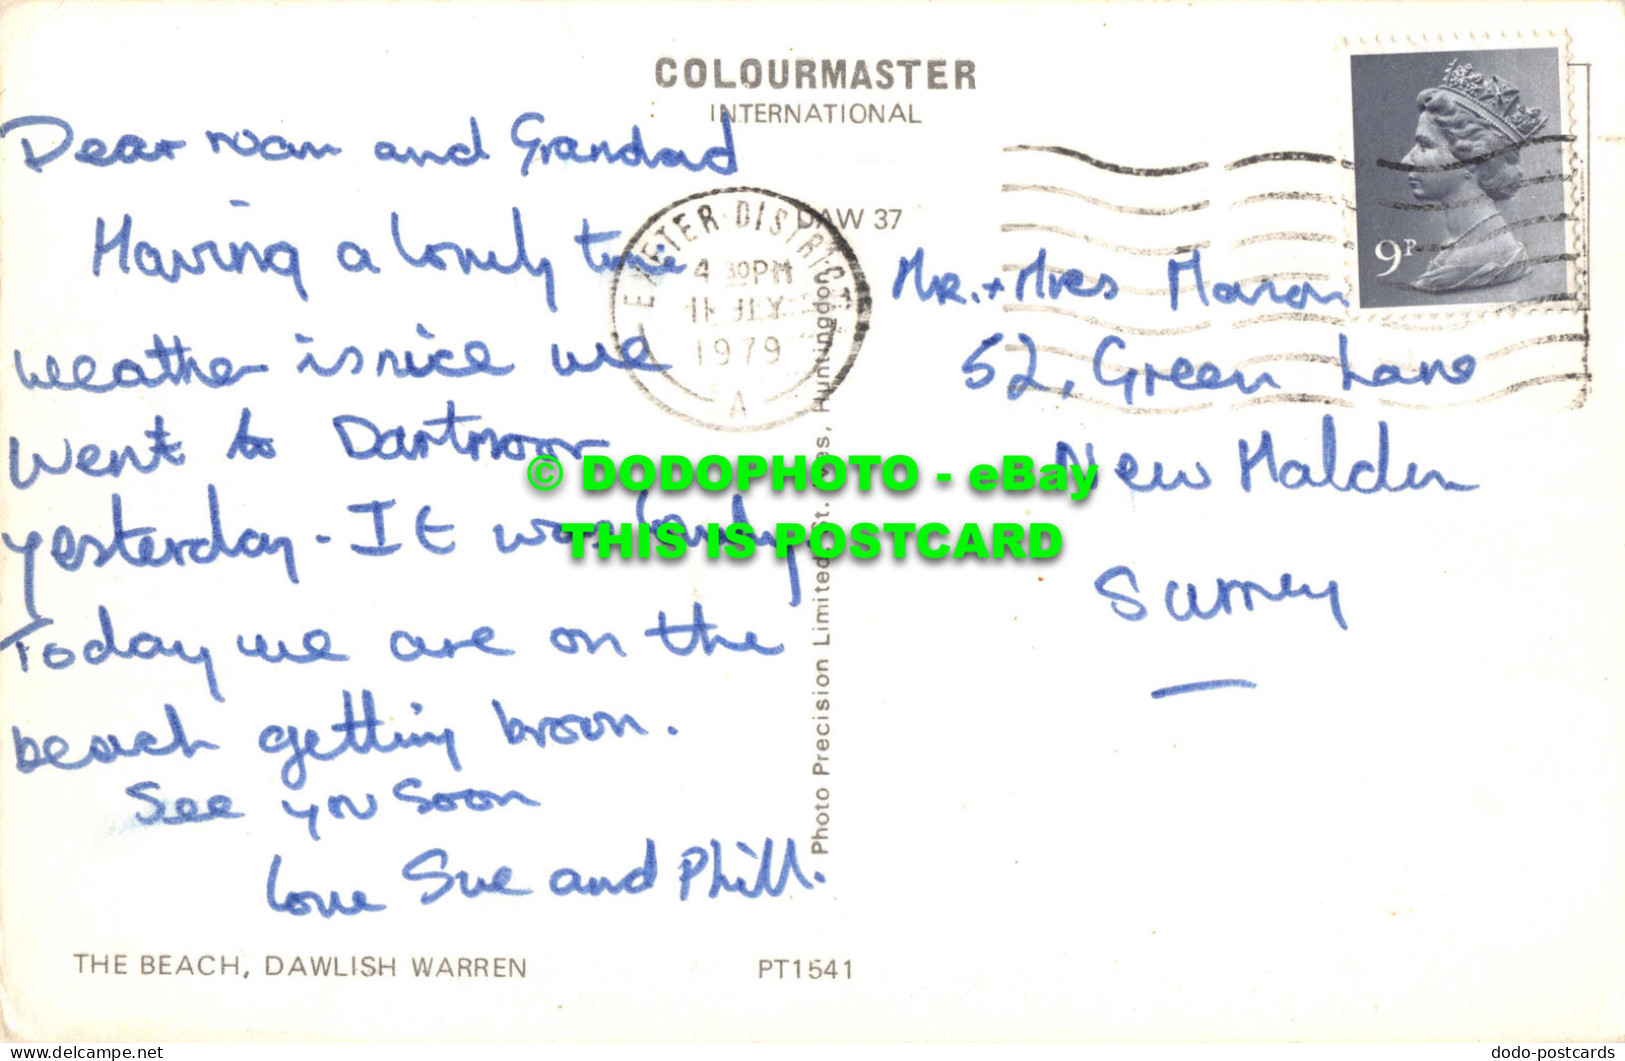 COLOURMASTER
INTERNATIONAL
Dear nan and Grandad
Having a lovely time
weather is nice we
Went to Dartmoor
yesterday - It was
Today we are on the
beach getting brown.
See you soon
love Sue and Phill.
THE BEACH, DAWLISH WARREN
PT1541
DAW 37
EXETER DISTRICT
4 30PM
11 JLY
1979
A
Photo Precision Limited, St. Ives, Huntingdon
9P
Mr. + Mrs
52, Green Lane
New Malden
Surrey
© DODOPHOTO - eBay
THIS IS POSTCARD
www.delcampe.net
dodo-postcards